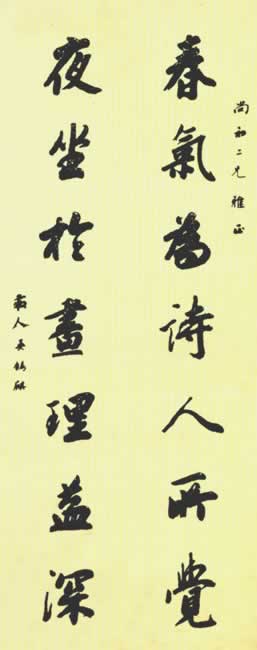 尚初二兄雅正
春氣為詩人所覺
夜坐於畫理益深
人吳